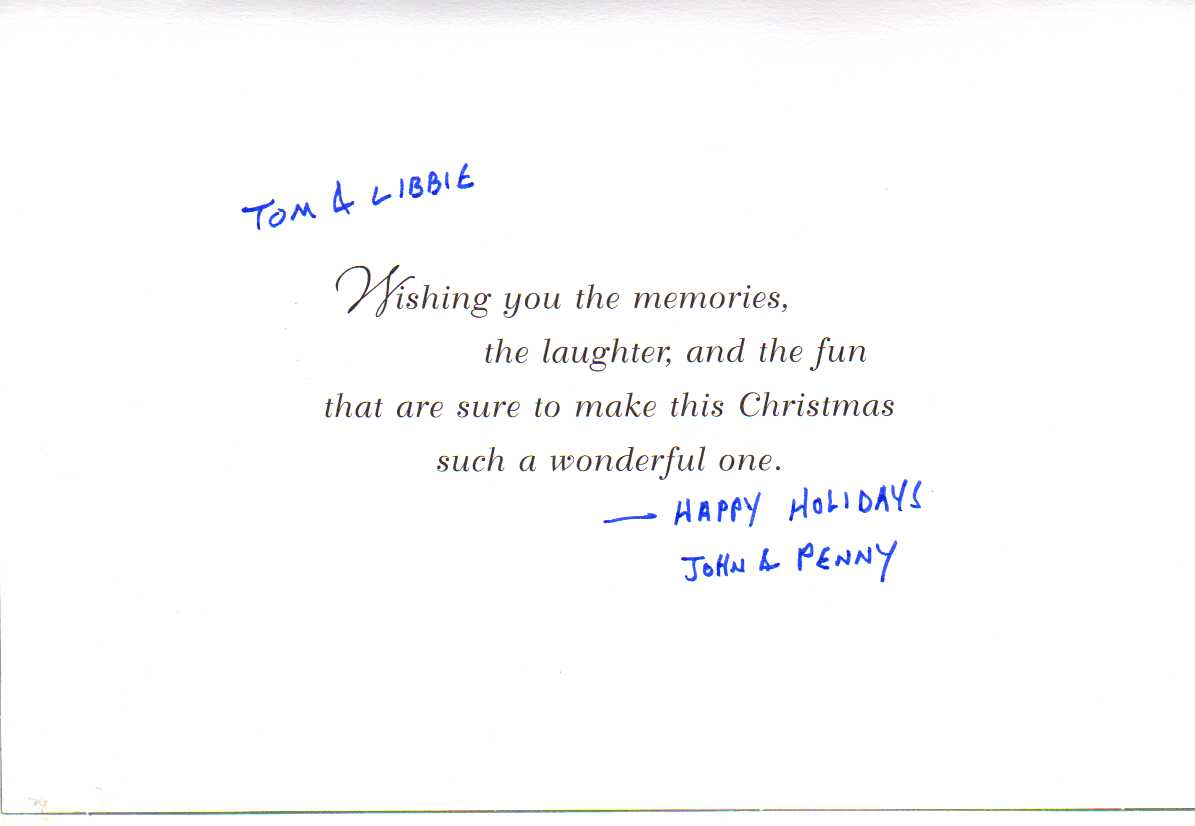 TOM & LIBBIE
Wishing you the memories,
the laughter, and the fun
that are sure to make this Christmas
such a wonderful one.
— HAPPY HOLIDAYS
JOHN & PENNY